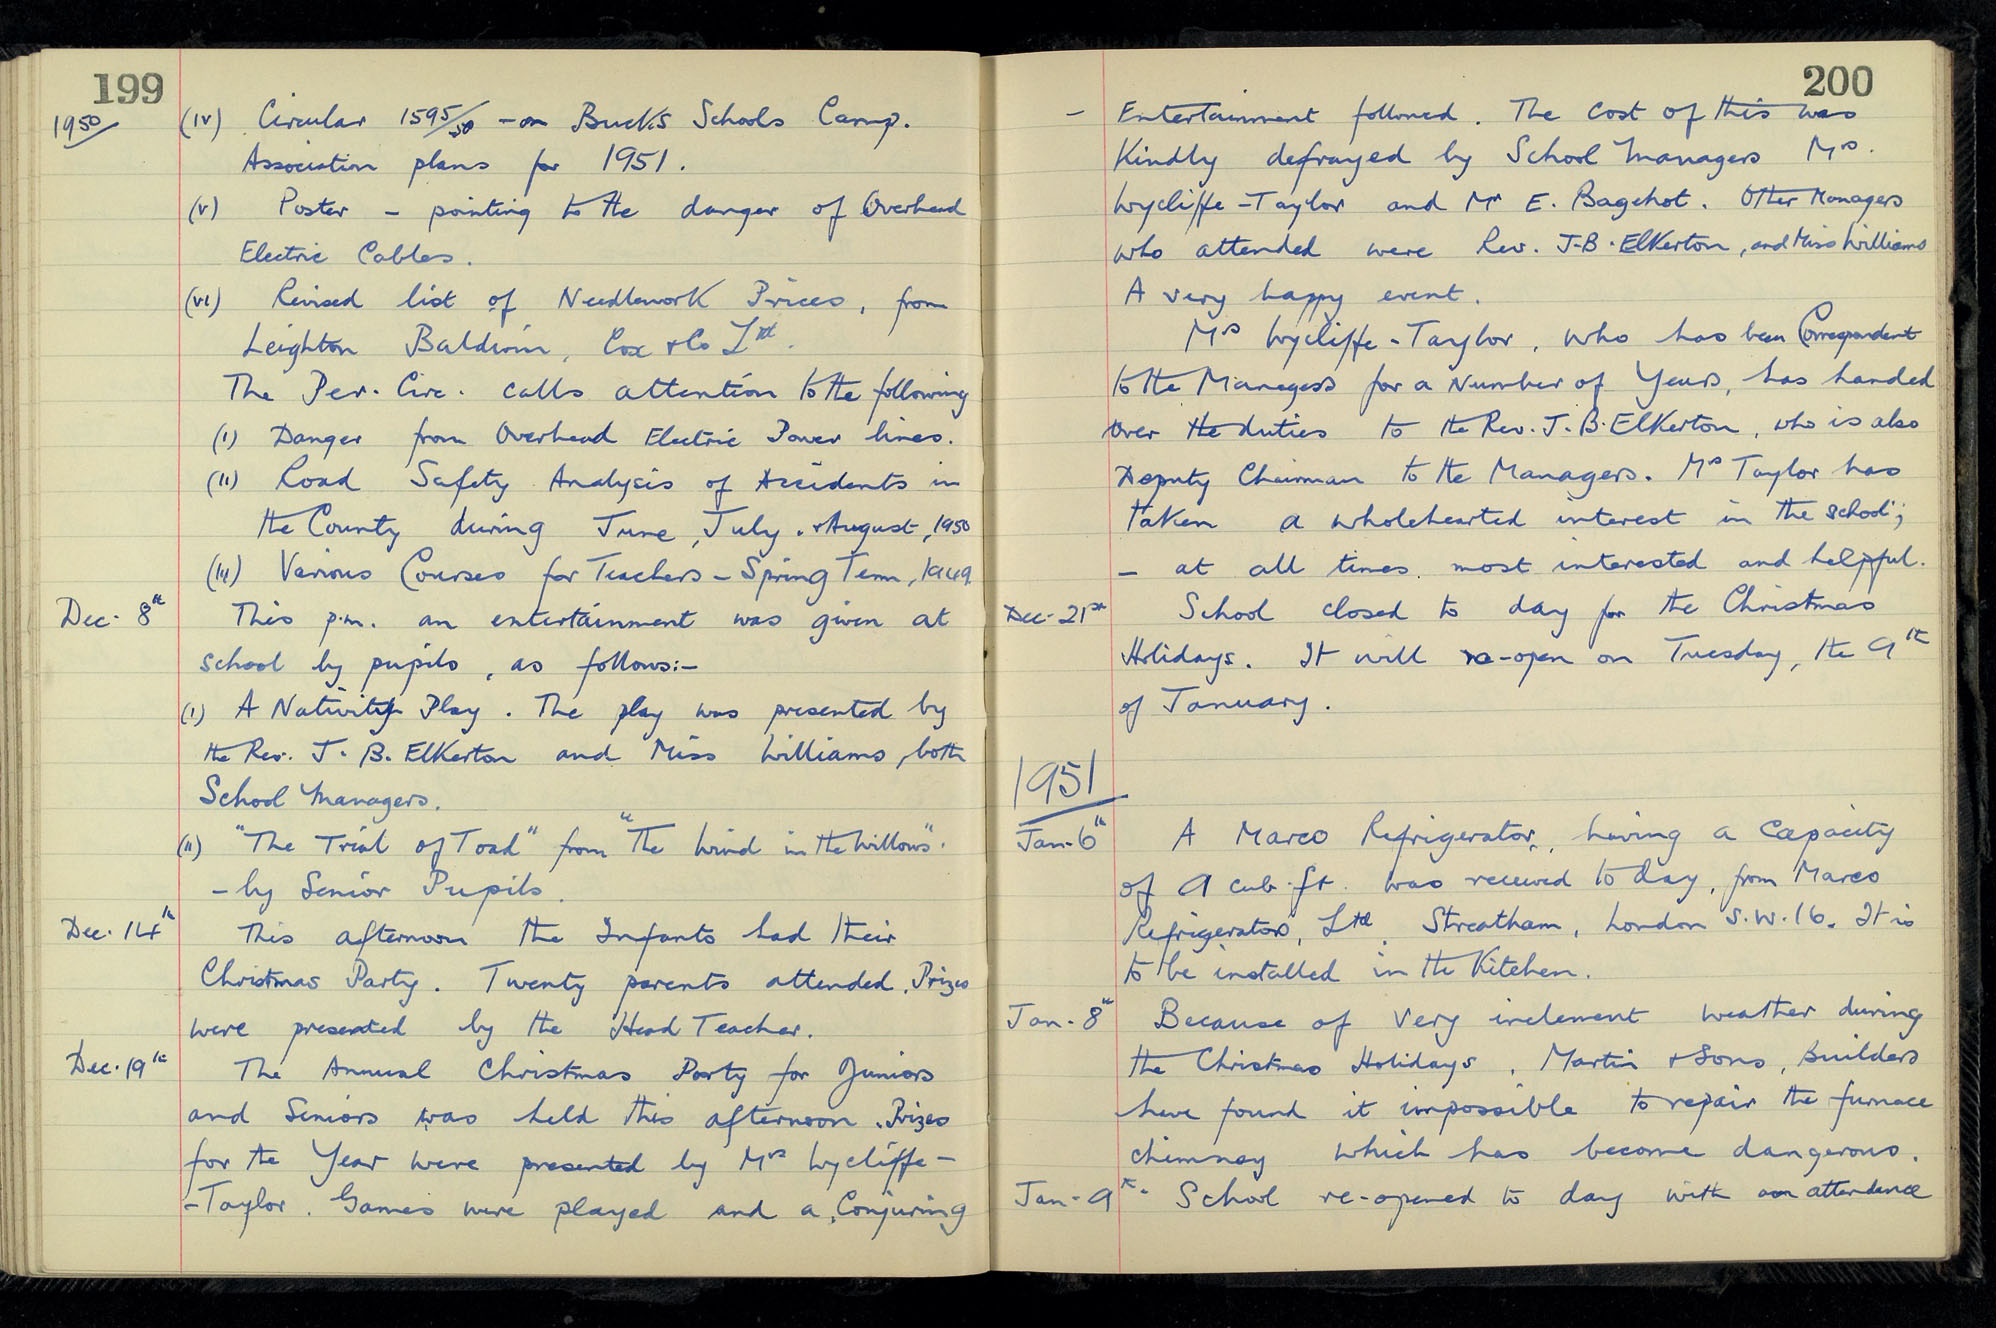 199
1950
(iv) Circular 1595/50 - on Bucks Schools Camp.
Association plans for 1951.
(v) Poster - pointing to the danger of Overhead
Electric Cables.
(vi) Revised list of Needlework Prices, from
Leighton Baldwin, Cox & Co Ltd.
The Per. Circ. calls attention to the following
(i) Danger from Overhead Electric Power lines.
(ii) Road Safety Analysis of Accidents in
the County during June, July & August, 1950
(iii) Various Courses for Teachers - Spring Term, 1949.
Dec. 8th This p.m. an entertainment was given at
school by pupils, as follows:-
(i) A Nativity Play. The play was presented by
the Rev. J. B. Elkerton and Miss Williams, both
School Managers.
(ii) "The Trial of Toad" from "The Wind in the Willows".
- by Senior Pupils.
Dec. 14th This afternoon the Infants had their
Christmas Party. Twenty parents attended. Prizes
were presented by the Head Teacher.
Dec. 19th The Annual Christmas Party for Juniors
and Seniors was held this afternoon. Prizes
for the Year were presented by Mrs Wycliffe-
-Taylor. Games were played and a Conjuring
200
- Entertainment followed. The cost of this was
Kindly defrayed by School Managers Mrs.
Wycliffe-Taylor and Mr E. Bagehot. Other Managers
who attended were Rev. J.B. Elkerton, and Miss Williams
A very happy event.
Mrs Wycliffe-Taylor, who has been Correspondent
to the Managers for a Number of Years, has handed
over the duties to the Rev. J. B. Elkerton, who is also
Deputy Chairman to the Managers. Mrs Taylor has
taken a wholehearted interest in the school;
- at all times most interested and helpful.
Dec. 21st School closed to day for the Christmas
Holidays. It will re-open on Tuesday, the 9th
of January.
1951
Jan. 6th A Marco Refrigerator, having a capacity
of 9 cub. ft. was received to day, from Marco
Refrigerators, Ltd, Streatham, London S.W.16. It is
to be installed in the Kitchen.
Jan. 8th Because of very inclement weather during
the Christmas Holidays, Martin & Sons, Builders
have found it impossible to repair the furnace
chimney which has become dangerous.
Jan. 9th. School re-opened to day with an attendance